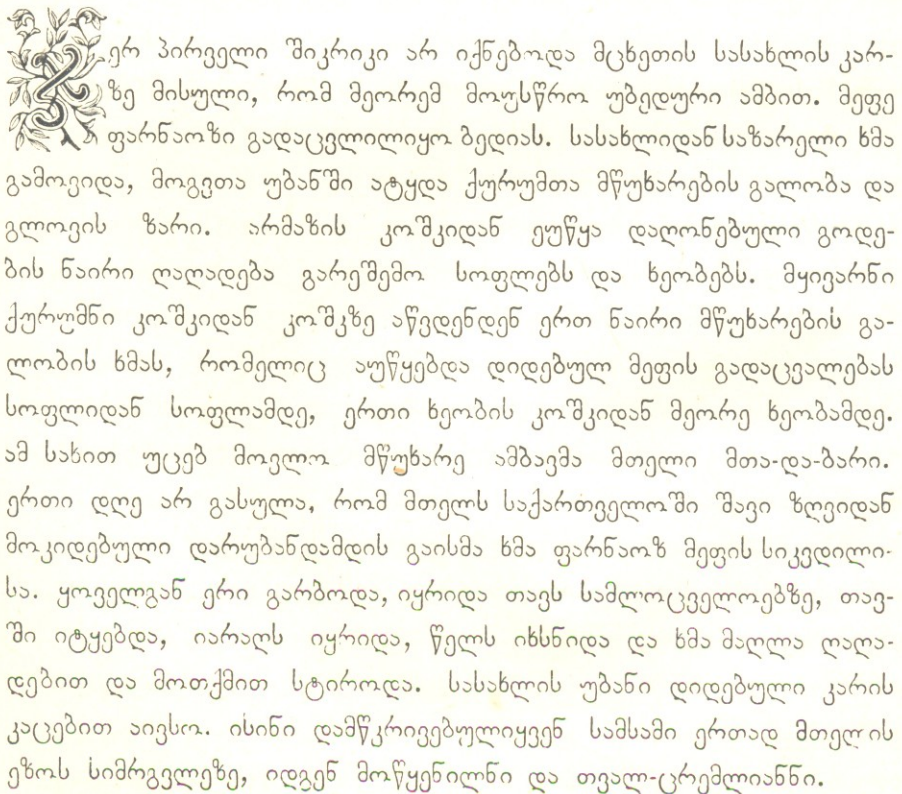 ჯერ პირველი შიკრიკი არ იქნებოდა მცხეთის სასახლის კარ-
ზე მისული, რომ მეორემ მოუსწრო უბედური ამბით. მეფე
ფარნაოზი გადაცვლილიყო ბედიას. სასახლიდან საზარელი ხმა
გამოვიდა, მოგვთა უბანში ატყდა ქურუმთა მწუხარების გალობა და
გლოვის ზარი. არმაზის კოშკიდან ეუწყა დაღონებული გოდე-
ბის ნაირი ღაღადება გარეშემო სოფლებს და ხეობებს. მყივარნი
ქურუმნი კოშკიდან კოშკზე აწვდენდენ ერთ ნაირი მწუხარების გა-
ლობის ხმას, რომელიც აუწყებდა დიდებულ მეფის გადაცვალებას
სოფლიდან სოფლამდე, ერთი ხეობის კოშკიდან მეორე ხეობამდე.
ამ სახით უცებ მოველო მწუხარე ამბავმა მთელი მთა-და-ბარი.
ერთი დღე არ გასულა, რომ მთელს საქართველოში შავი ზღვიდან
მოკიდებული დარუბანდამდის გაისმა ხმა ფარნაოზ მეფის სიკვდილი-
სა. ყოველგან ერი გარბოდა, იყრიდა თავს სამლოცველოებზე, თავ-
ში იტყებდა, იარაღს იყრიდა, წელს იხსნიდა და ხმა მაღლა ღაღა-
დებით და მოთქმით სტიროდა. სასახლის უბანი დიდებული კარის
კაცებით აივსო. ისინი დამწკრივებულიყვენ სამსამი ერთად მთელის
ეზოს სიმრგვლეზე, იდგენ მოწყენილნი და თვალ-ცრემლიანნი.